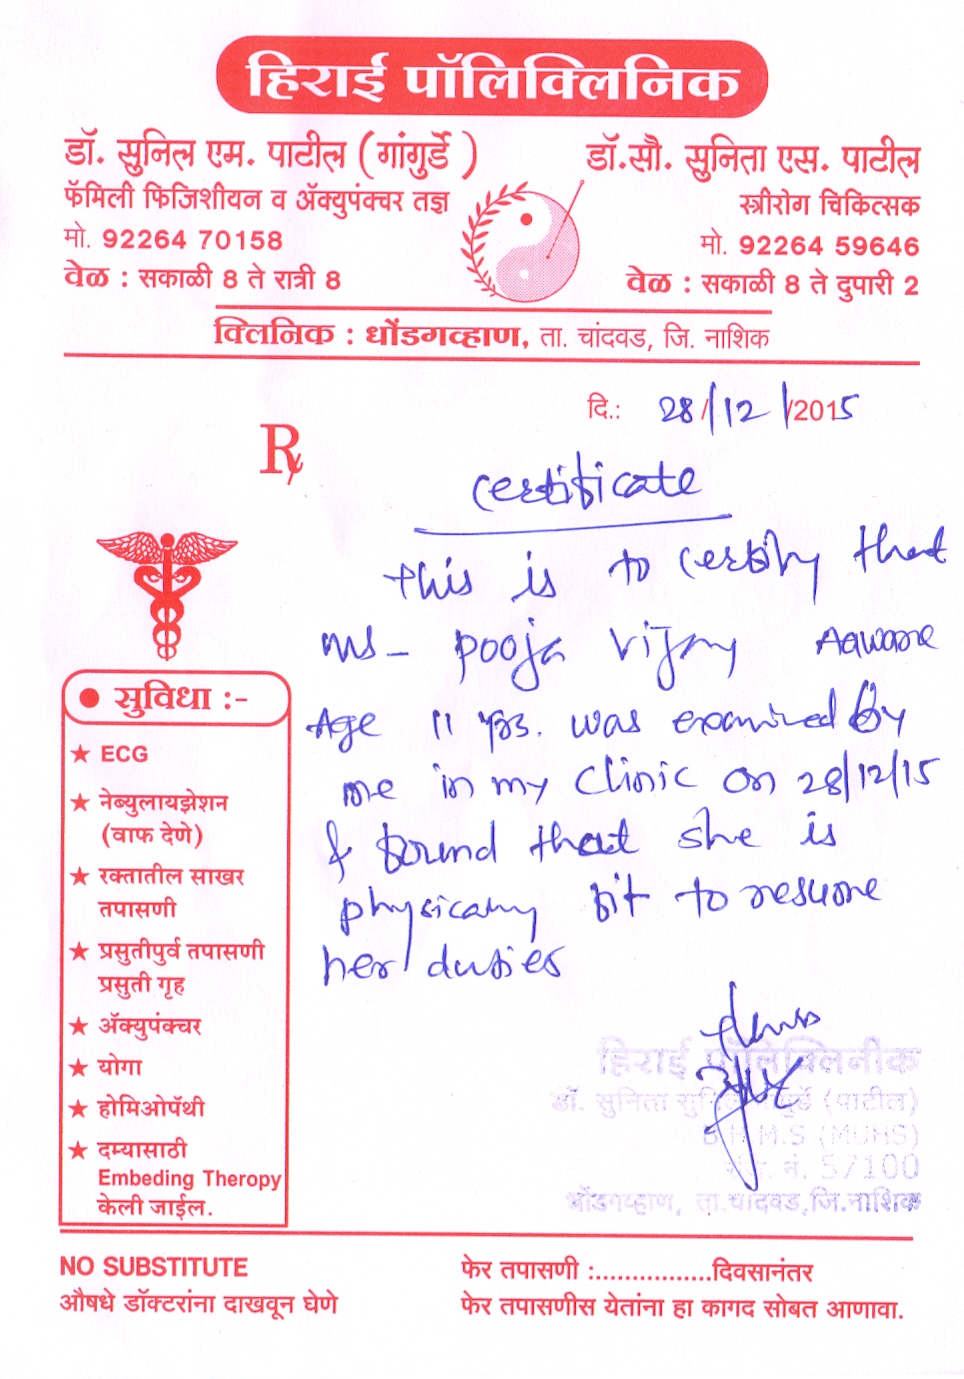 हिराई पॉलिक्लिनिक
डॉ. सुनिल एम. पाटील (गांगुर्डे)
फॅमिली फिजिशीयन व ॲक्युपंक्चर तज्ञ
मो. 92264 70158
वेळ : सकाळी 8 ते रात्री 8
डॉ.सौ. सुनिता एस. पाटील
स्त्रीरोग चिकित्सक
मो. 92264 59646
वेळ : सकाळी 8 ते दुपारी 2
क्लिनिक : धोंडगव्हाण, ता. चांदवड, जि. नाशिक
दि.: 28/12/2015
Rx
Certificate
This is to certify that
Ms - Pooja Vijay Aaware
Age 11 yrs. was examined by
me in my Clinic on 28/12/15
& found that she is
physically fit to resume
her duties
हिराई पॉलिक्लिनीक
डॉ. सुनिता गुर्डे (पाटील)
B.H.M.S (MUHS)
नं. 57100
धोंडगव्हाण, ता.चांदवड,जि.नाशिक
सुविधा :-
★ ECG
★ नेब्युलायझेशन
(वाफ देणे)
★ रक्तातील साखर
तपासणी
★ प्रसुतीपुर्व तपासणी
प्रसुती गृह
★ ॲक्युपंक्चर
★ योगा
★ होमिओपॅथी
★ दम्यासाठी
Embeding Theropy
केली जाईल.
NO SUBSTITUTE
औषधे डॉक्टरांना दाखवून घेणे
फेर तपासणी :................दिवसानंतर
फेर तपासणीस येतांना हा कागद सोबत आणावा.